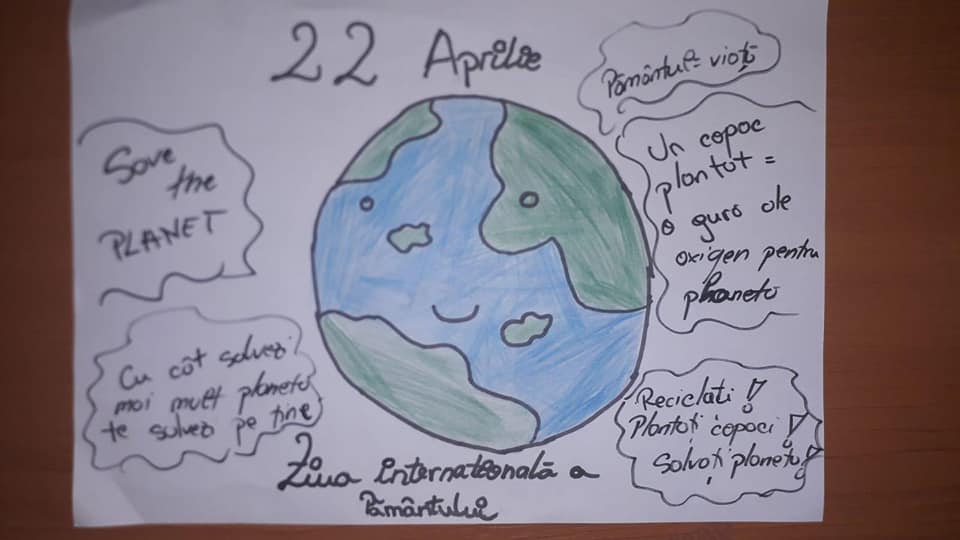 22 Aprilie
Pământul = viață
Save
the
PLANET
Un copac
plantat =
o gura de
oxigen pentru
planeta
Cu cât salvezi
mai mult planeta
te salvezi pe tine
Reciclati!
Plantați copaci!
Salvați planeta!
Ziua internatională a
Pământului